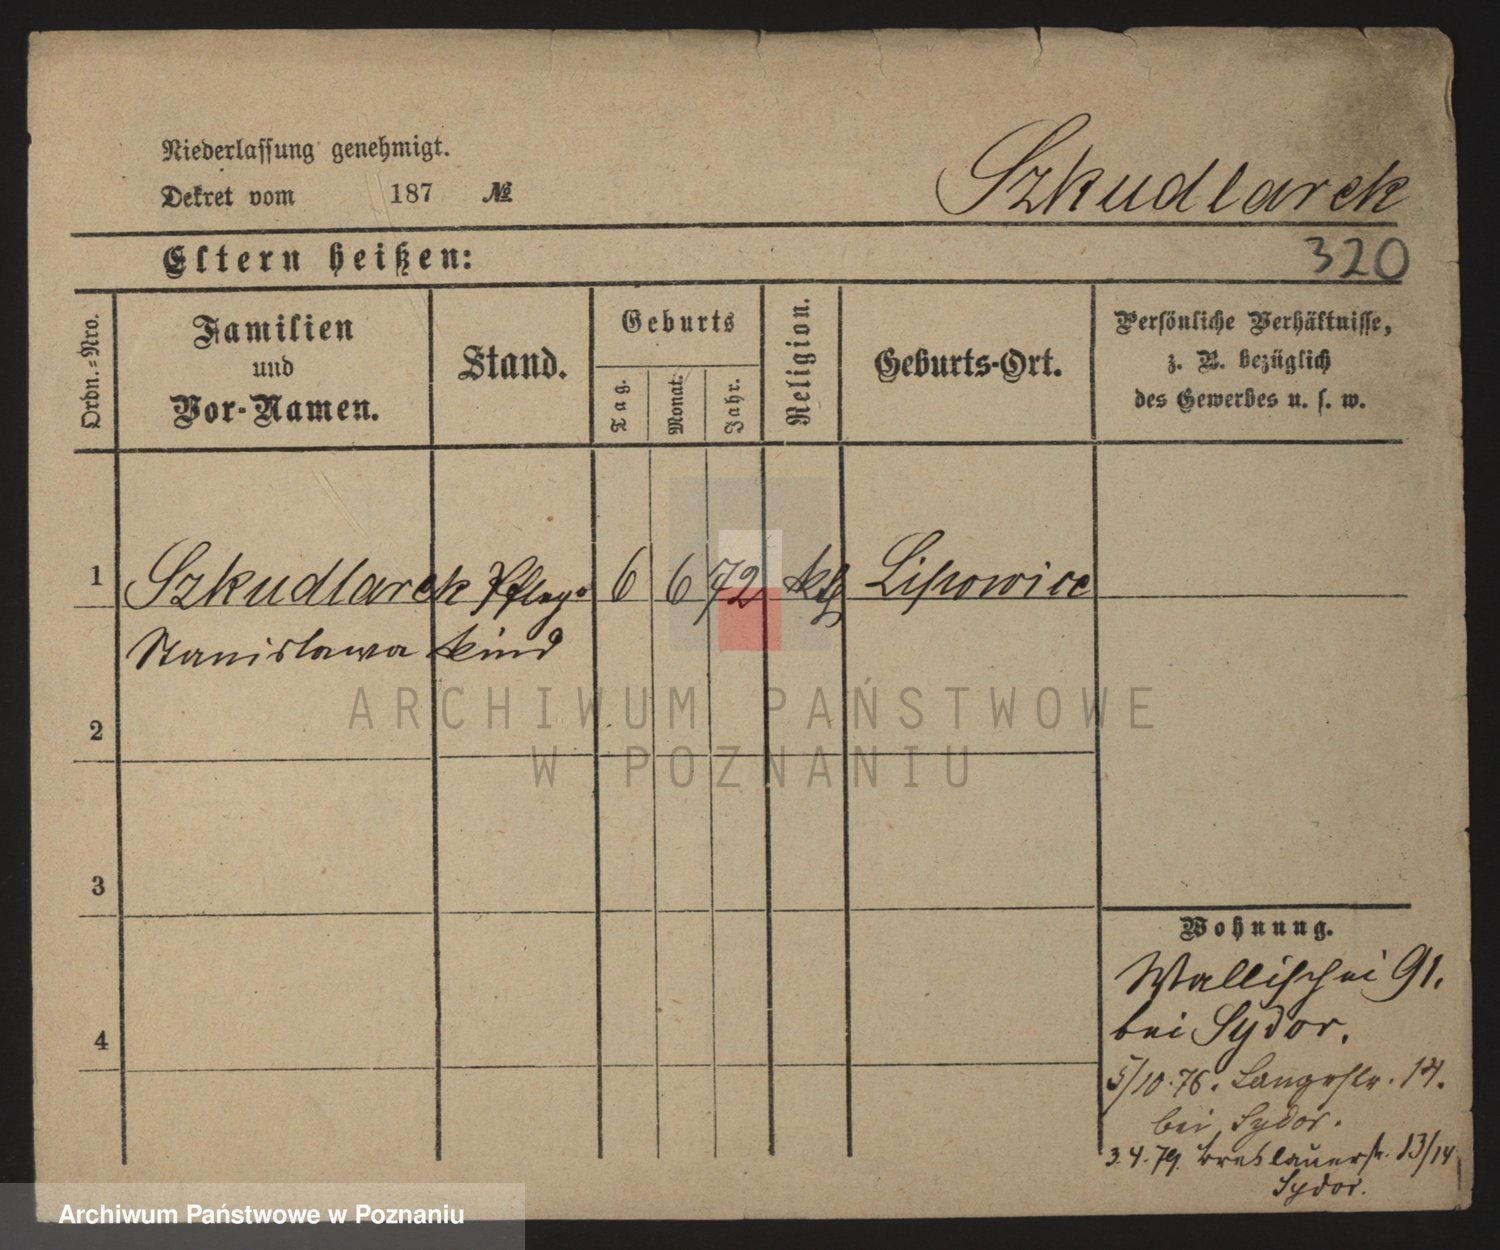 Niederlassung genehmigt.
Dekret vom 187 №
Szkudlarek
Eltern heißen:
320
Ordn.=Nro.
Familien
und
Vor-Namen.
Stand.
Geburts
Tag.
Monat.
Jahr.
Religion.
Geburts-Ort.
Persönliche Verhältnisse,
z. B. bezüglich
des Gewerbes u. s. w.
1 Szkudlarek Pflege- 6 6 72 kth Lipowice
Stanislawa kind
ARCHIWUM PAŃSTWOWE
W POZNANIU
2
3
4
Wohnung.
Wallischei 91.
bei Sydor.
5/10.76. Langestr. 14.
bei Sydor.
3.4.79. Breslauerstr. 13/14
Sydor.
Archiwum Państwowe w Poznaniu